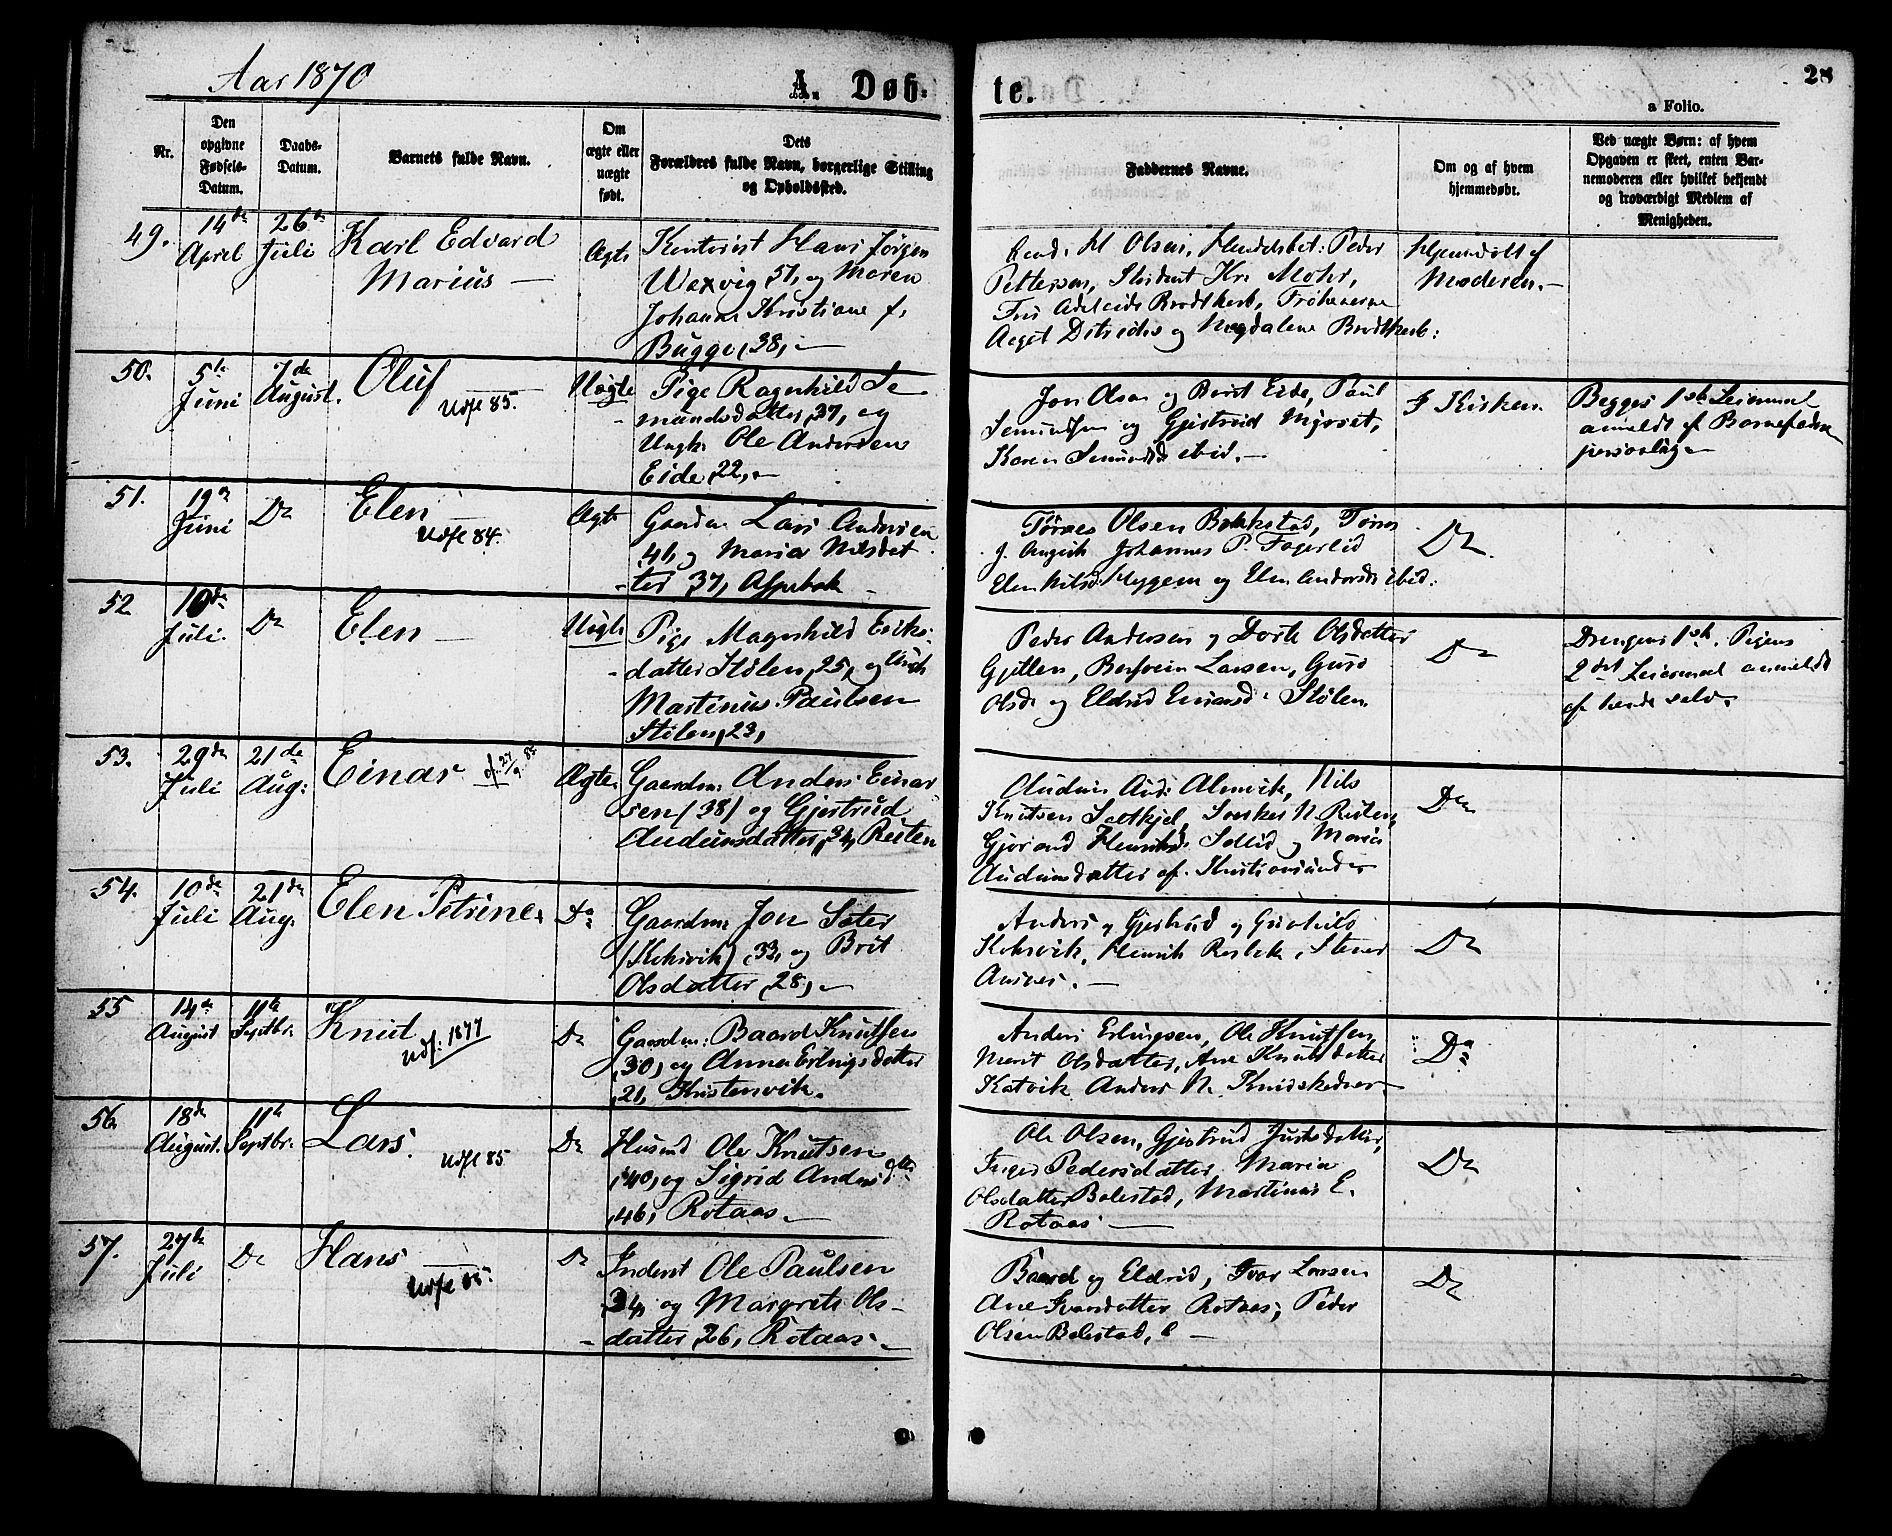 Aar 1870
A. Døb-
te.
28
a Folio.
Nr.
Den
opgivne
Fødsels-
Datum.
Daabs-
Datum.
Barnets fulde Navn.
Om
ægte eller
uægte
født.
Dets
Forældres fulde Navn, borgerlige Stilling
og Opholdssted.
Faddernes Navne.
Om og af hvem
hjemmedøbt.
Ved uægte Børn: af hvem
Opgaven er skeet, enten Bar-
nemoderen eller hvilket bekjendt
og troværdigt Medlem af
Menigheden.
49.
14de
April
26de
Juli
Karl Edvard
Marius —
Ægte
Kontorist Hans Jørgen
Wexvig, 51, og Maren
Johanne Kristiane f.
Bugge, 38, —
M Olsen, Peder
Pettersen, Student Kr. Mohr,
Adelaide Brodtkorb, Frøknerne
Magdalene Brodtkorb:
Hjemmedøbt af
Moderen. —
50.
5te
Juni
7de
August.
Oluf
Udfl 85.
Uægte
Pige Ragnhild Se
mundsdatter, 37, og
Ungk. Ole Andersen
Eide, 22, —
Jon Olsen og Berit Eide, Paul
Semundsen og Gjertrud
Karen ibid. —
I Kirken
Begges 1ste Leiermaal
anmeldt af Barnefaderen
personlig —
51.
19de
Juni
Do
Elen
Udfl 84.
Ægte
Gaardm. Lars Andersen
46, og Maria Nilsdat
ter 37,
Olsen
Johannes P. Fagerlid
Elen Nilsd. og Elen ibid.
Do.
52
10de
Juli.
Do
Elen —
Uægte
Pige Magnhild Eriks-
datter Stølen, 25, og Ungk
Martinus Paulsen
Stølen, 23,
Peder Andersen og Dorte Olsdatter
Gjillen, Larsen, Guro
Olsd. og Eldrid Stølen.
Do
Drengens 1ste, Pigens
2det Leiermaal anmeldt
af hende selv.
53.
29de
Juli
21de
Aug:
Einar
Ægte.
Gaardm. Anders Einar
sen (38) og Gjertrud
Audunsdatter, 34, Reiten
Audun And. Nils
Knutsen N. Reiten,
Gjøroud Henriksd. Sollid og Maria
Audunsdatter af Kristiansund
Do
54.
10de
Juli
21de
Aug.
Elen Petrine.
Do
Gaardm. Jon Sæter
(Koksvik), 33, og Brit
Olsdatter, 28, —
Anders og Gjertrud og Gunhild
Koksvik, Henrik Stener
Do
55
14de
August
11te
Septbr.
Knut
Udf: 1877
Do
Gaardm: Baard Knutsen
30, og Anne Erlingsdatter
21, Kristenvik.
Anders Erlingsen, Ole Knutsen,
Marit Olsdatter, Ane Knutsdatter
Anders N.
Do
56.
18de
August.
11te
Septbr.
Lars.
Udfl 85
Do
Husmd Ole Knutsen
40, og Sigrid Andersdtr
46, Rotaas. —
Ole Olsen, Gjertrud
Inger Pedersdatter, Maria
Olsdatter Bolestad, Martinus E.
Rotaas —
Do
57.
27de
Juli
Do
Hans
Udfl 85.
Do
Inderst Ole Paulsen
34, og Margrete Ols-
datter, 26, Rotaas. —
Baard og Eldrid, Ivar Larsen
Ane Ivarsdatter Rotaas, Peder
Olsen Bolestad, —
Do